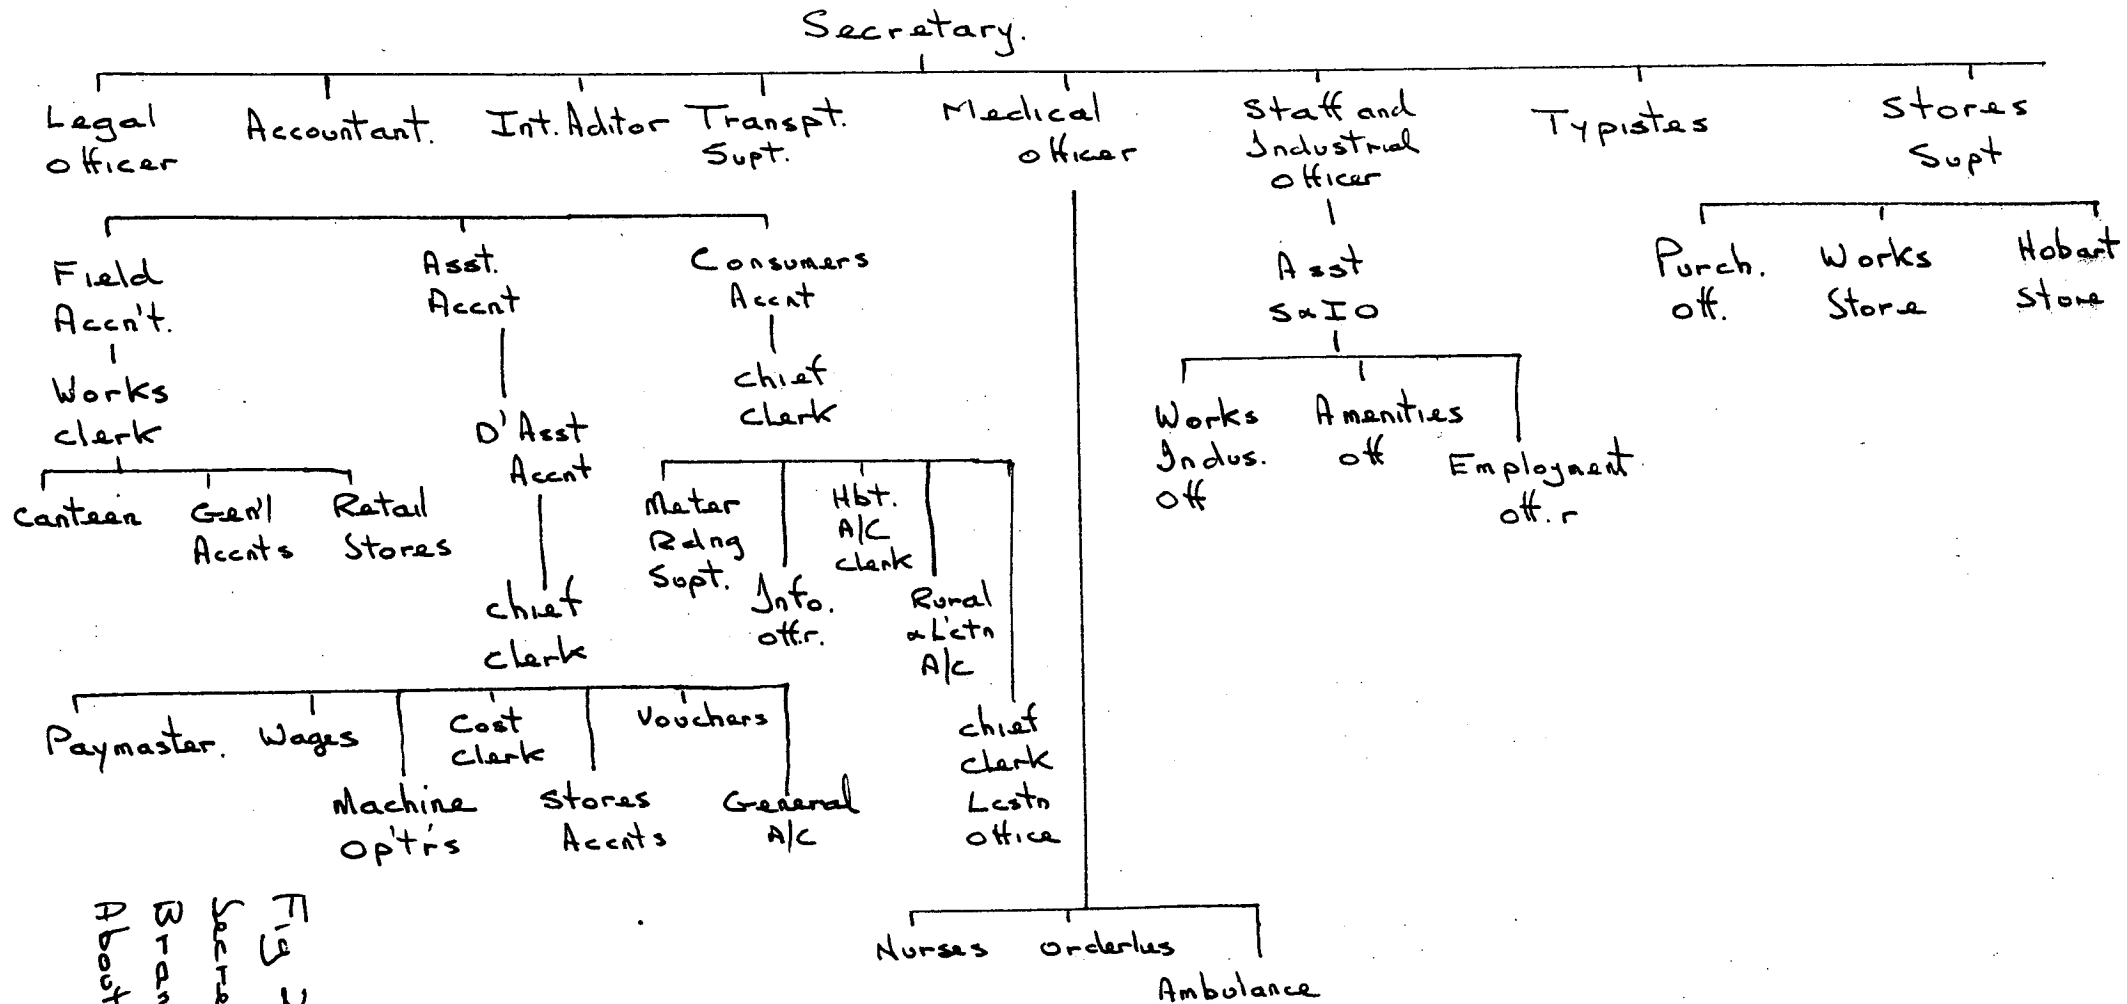 Secretary.
Legal
Officer
Accountant.
Int. Aditor
Transpt.
Supt.
Medical
Officer
Staff and
Industrial
Officer
Typistes
Stores
Supt
Field
Accn't.
Asst.
Accnt
Consumers
Accnt
Asst
S & I O
Purch.
Off.
Works
Store
Hobart
Store
Works
Clerk
D'Asst
Accnt
Chief
Clerk
Works
Indus.
Off
Amenities
Off
Employment
Off.r
Canteen
Gen'l
Accnts
Retail
Stores
Chief
Clerk
Meter
Rdng
Supt.
Info.
Off.r.
Hbt.
A/C
Clerk
Rural
& L'ctn
A/C
Chief
Clerk
Lcstn
Office
Paymaster.
Wages
Machine
Op't'r's
Cost
Clerk
Stores
Accnts
Vouchers
General
A/C
Nurses
Orderlies
Ambulance
Fig
About